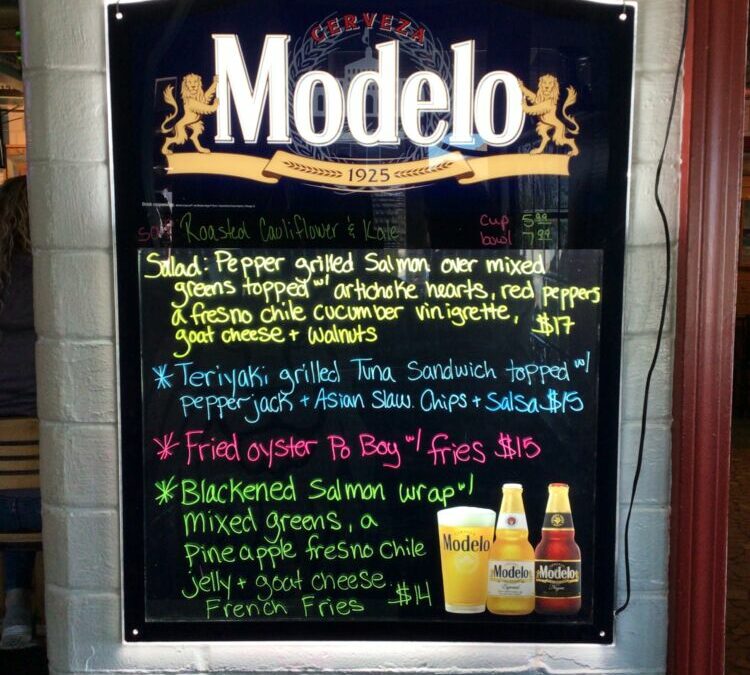 CERVEZA
Modelo
1925
Soup Roasted Cauliflower & Kale cup 5.99
bowl 7.99
Salad: Pepper grilled Salmon over mixed
greens topped w/ artichoke hearts, red peppers
a fresno chile cucumber vinigrette, $17
goat cheese + walnuts
* Teriyaki grilled Tuna Sandwich topped w/
pepperjack + Asian Slaw. Chips + Salsa $15
* Fried oyster Po Boy w/ fries $15
* Blackened Salmon wrap w/
mixed greens, a
Pineapple fresno chile
jelly + goat cheese.
French Fries $14
Modelo
Modelo
Especial
Modelo
Negra